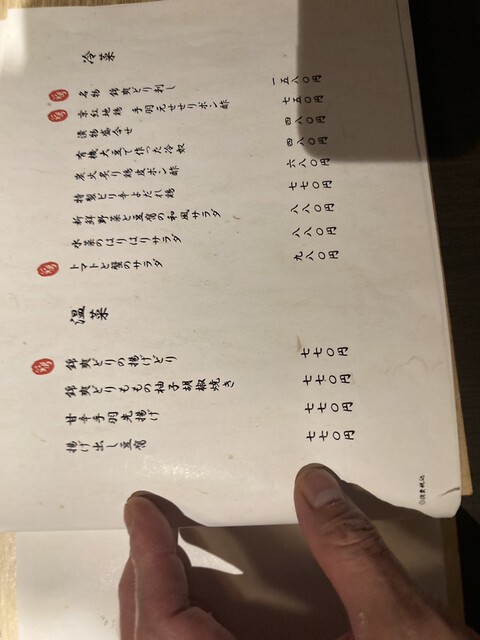 冷菜
名物 錦爽どり刺し 一五八〇円
京紅地鶏 手羽元せせりポン酢 七五〇円
漬物盛合せ 四八〇円
有機大豆で作った冷奴 四八〇円
炭火炙り鶏皮ポン酢 六八〇円
特製ピリ辛よだれ鶏 七七〇円
新鮮野菜と豆腐の和風サラダ 八八〇円
水菜のはりはりサラダ 八八〇円
トマトと蟹のサラダ 九八〇円
温菜
錦爽どりの揚げどり 七七〇円
錦爽どりももの柚子胡椒焼き 七七〇円
甘辛手羽先揚げ 七七〇円
揚げ出し豆腐 七七〇円